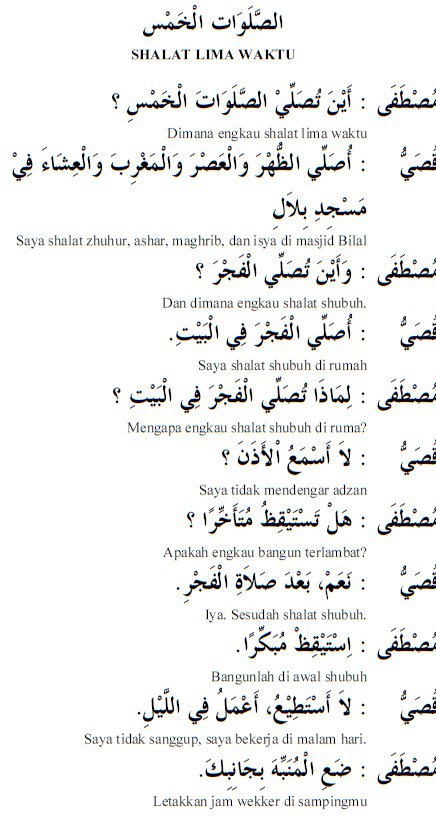 الصَّلَوَات الْخَمْس
SHALAT LIMA WAKTU
مُصْطَفَى : أَيْنَ تُصَلِّيْ الصَّلَوَاتَ الْخَمْسِ ؟
Dimana engkau shalat lima waktu
قُصَيُّ : أُصَلِّي الظُّهْرَ وَالْعَصْرَ وَالْمَغْرِبَ وَالْعِشَاءَ فِيْ
مَسْجِدِ بِلاَلِ
Saya shalat zhuhur, ashar, maghrib, dan isya di masjid Bilal
مُصْطَفَى : وَأَيْنَ تُصَلِّي الْفَجْرَ ؟
Dan dimana engkau shalat shubuh.
قُصَيُّ : أُصَلِّي الْفَجْرَ فِي الْبَيْتِ.
Saya shalat shubuh di rumah
مُصْطَفَى : لِمَاذَا تُصَلِّي الْفَجْرَ فِي الْبَيْتِ ؟
Mengapa engkau shalat shubuh di ruma?
قُصَيُّ : لاَ أَسْمَعُ اْلأَذَنَ ؟
Saya tidak mendengar adzan
مُصْطَفَى : هَلْ تَسْتَيْقِظُ مُتَأَخِّرًا ؟
Apakah engkau bangun terlambat?
قُصَيُّ : نَعَمْ، بَعْدَ صَلاَةِ الْفَجْرِ.
Iya. Sesudah shalat shubuh.
مُصْطَفَى : اِسْتَيْقِظْ مُبَكِّرًا.
Bangunlah di awal shubuh
قُصَيُّ : لاَ أَسْتَطِيْعُ، أَعْمَلُ فِي اللَّيْلِ.
Saya tidak sanggup, saya bekerja di malam hari.
مُصْطَفَى : ضَعِ الْمُنَبِّهَ بِجَانِبِكَ.
Letakkan jam wekker di sampingmu